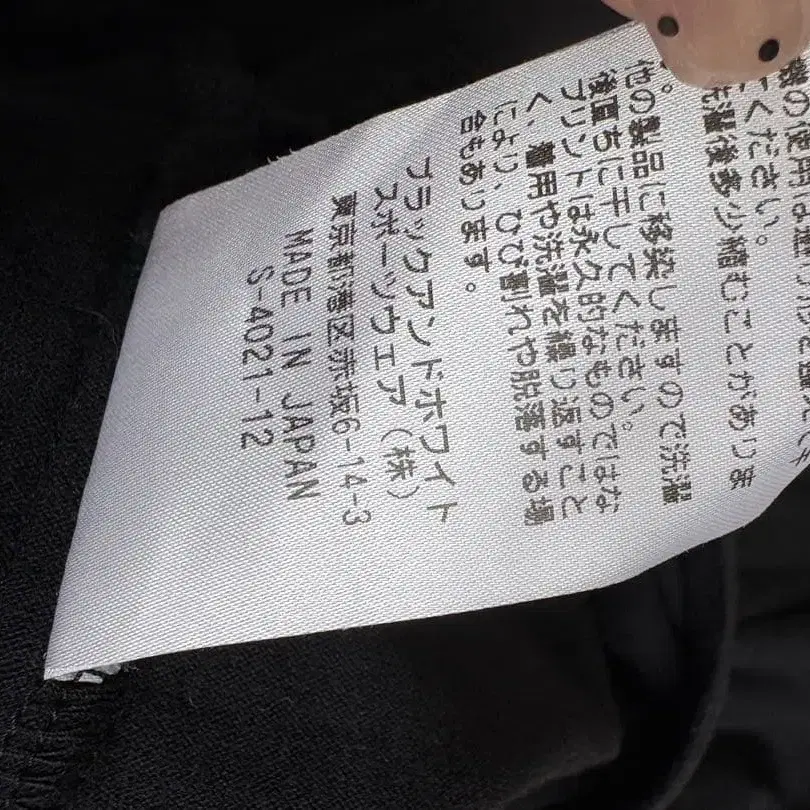 てください。
洗濯後多少縮むことがありま
す。
他の製品に移染しますので洗濯
後直ちに干してください。
プリントは永久的なものではな
く、着用や洗濯を繰り返すこと
により、ひび割れや脱落する場
合もあります。
ブラックアンドホワイト
スポーツウェア(株)
東京都港区赤坂6-14-3
MADE IN JAPAN
S-4021-12